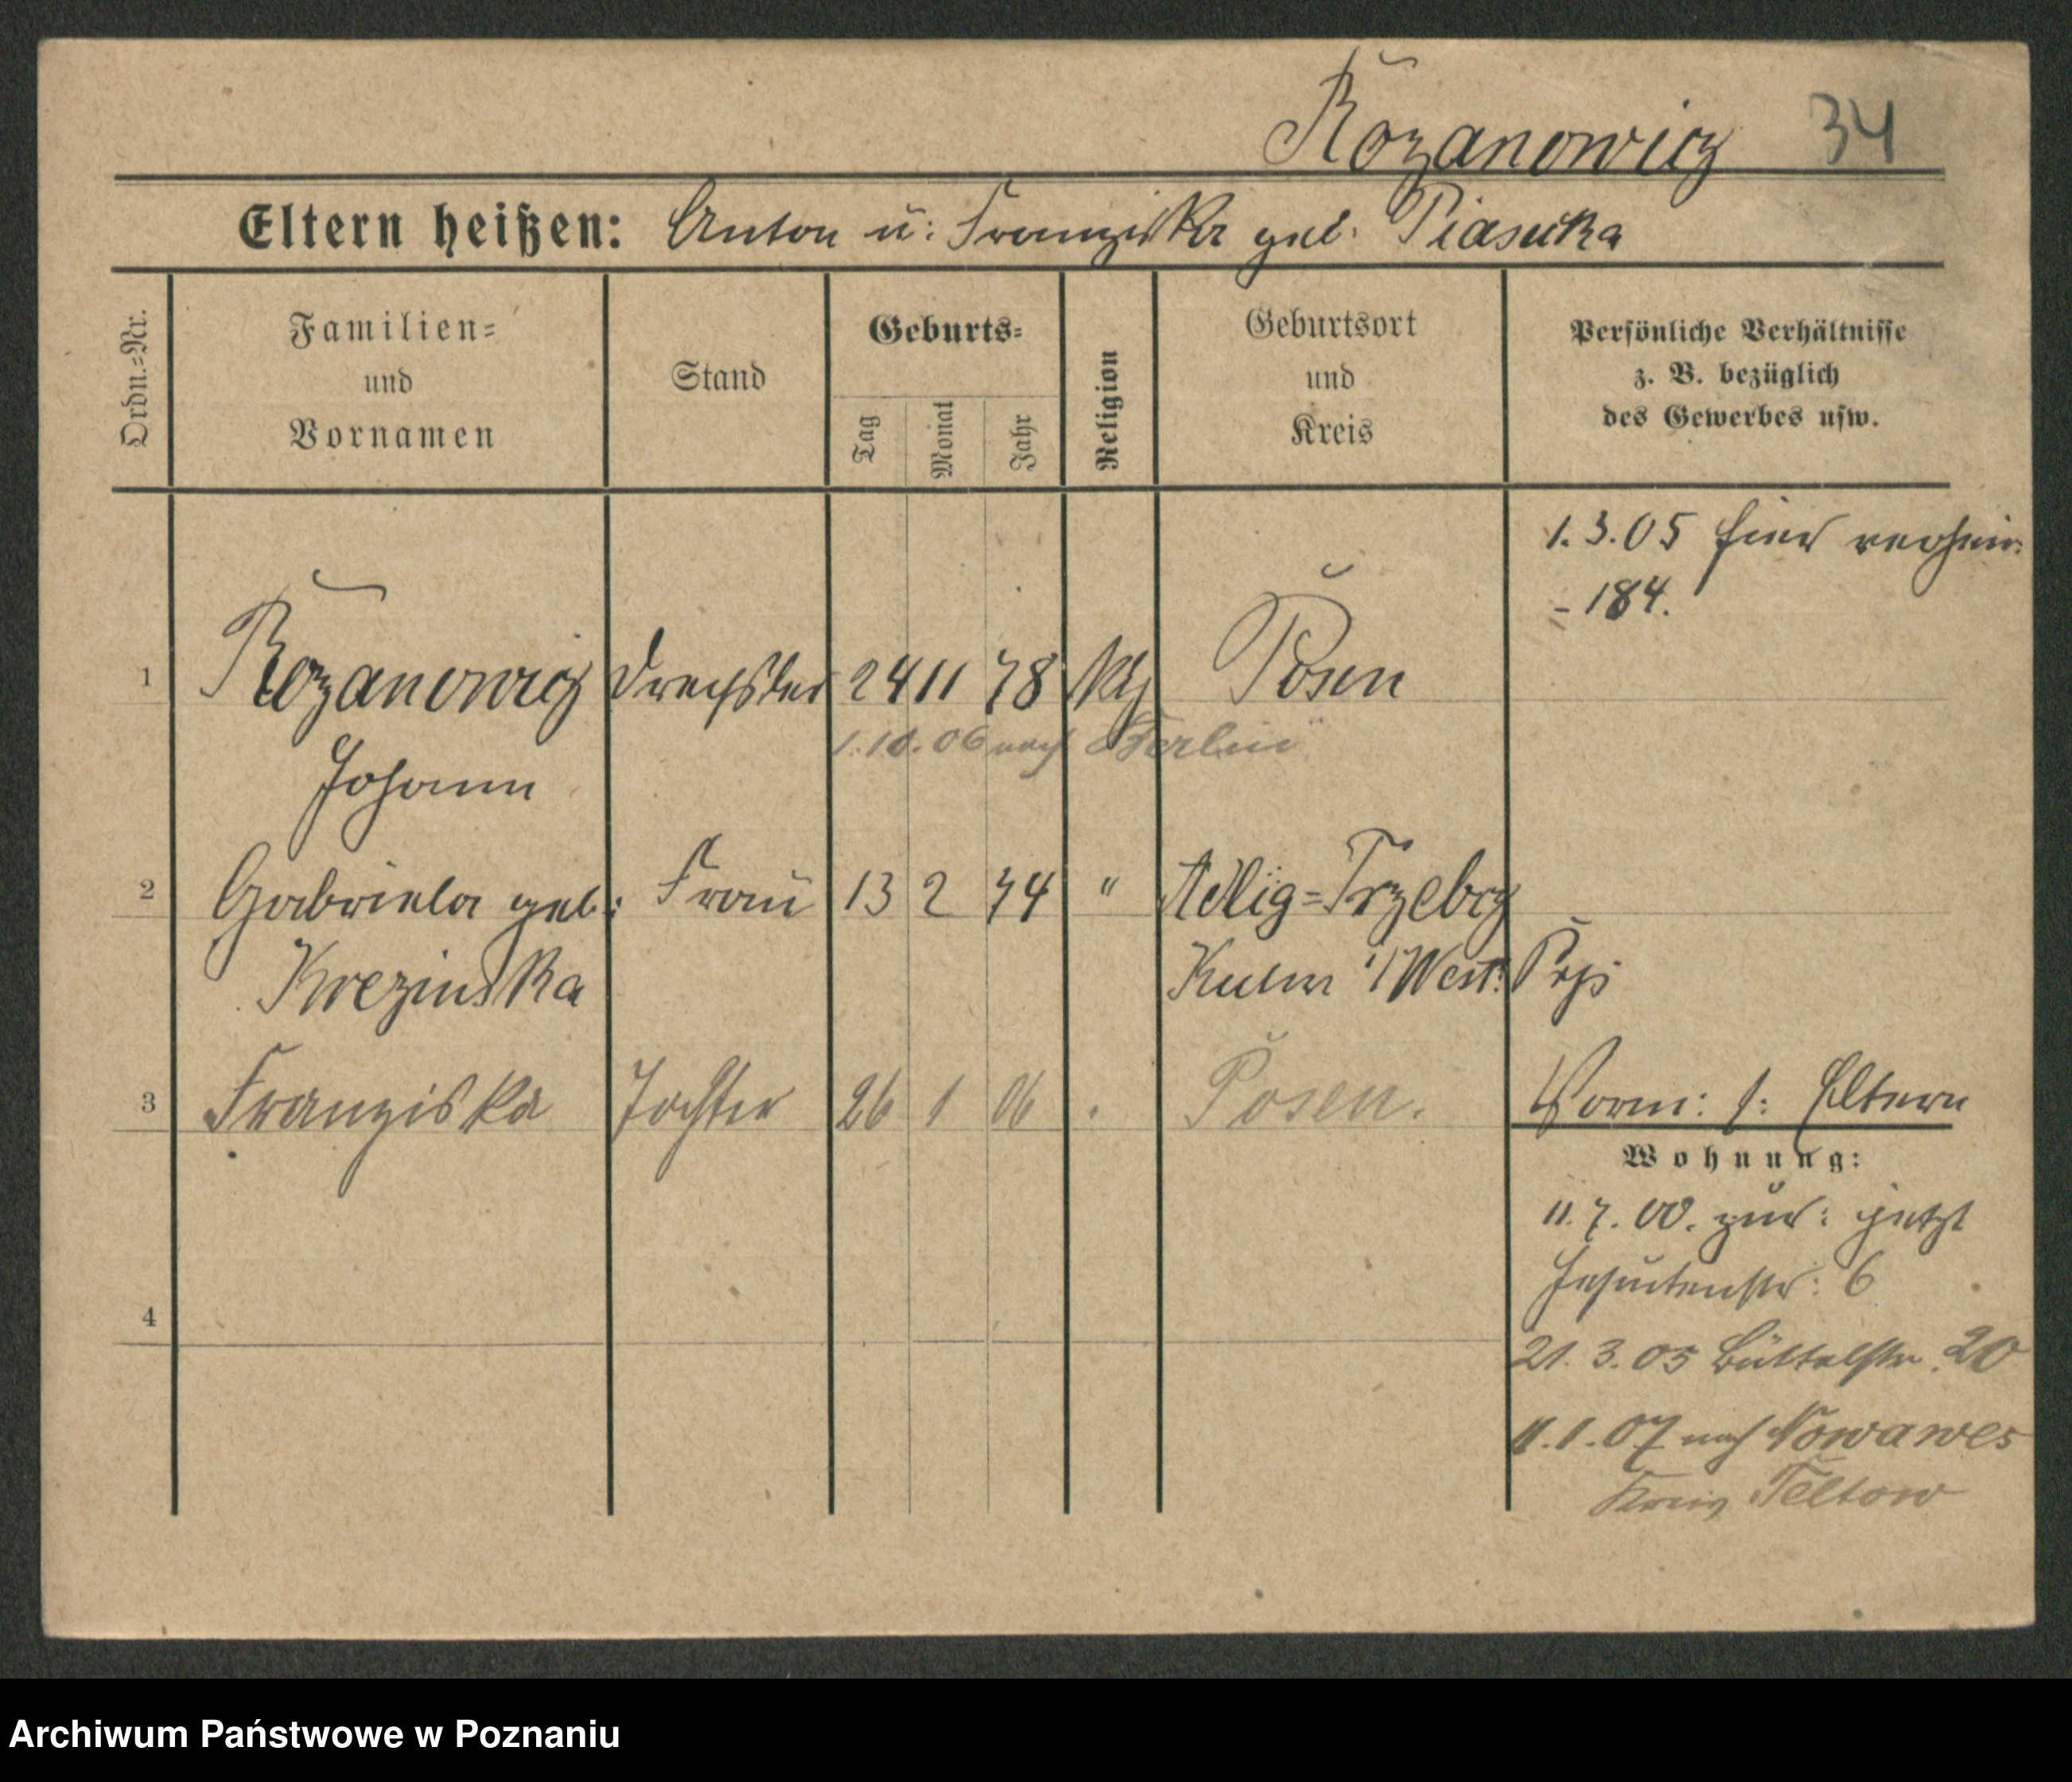 Rozanowicz 34
Eltern heißen: Anton u: Franziska geb: Piasecka
Ordn.=Nr.
Familien=
und
Vornamen
Stand
Geburts=
Tag
Monat
Jahr
Religion
Geburtsort
und
Kreis
Persönliche Verhältnisse
z. B. bezüglich
des Gewerbes usw.
1.3.05 hier verheir:
- 184.
1 Rozanowicz Drechsler 24 11 78 Posen
1.10.06 nach Berlin
Johann
2 Gabriela geb: Frau 13 2 74 " Adlig=Trzebcz
Krezinska Kulm i/West: Prß
3 Franziska Tochter 26 1 06 Posen.
Vorm: s: Eltern
Wohnung:
11.7.00. zur: jetzt
Jesuitenstr: 6
4
21.3.05 Büttelstr. 20
1.07 nach Nowawes
Kreis Teltow
Archiwum Państwowe w Poznaniu